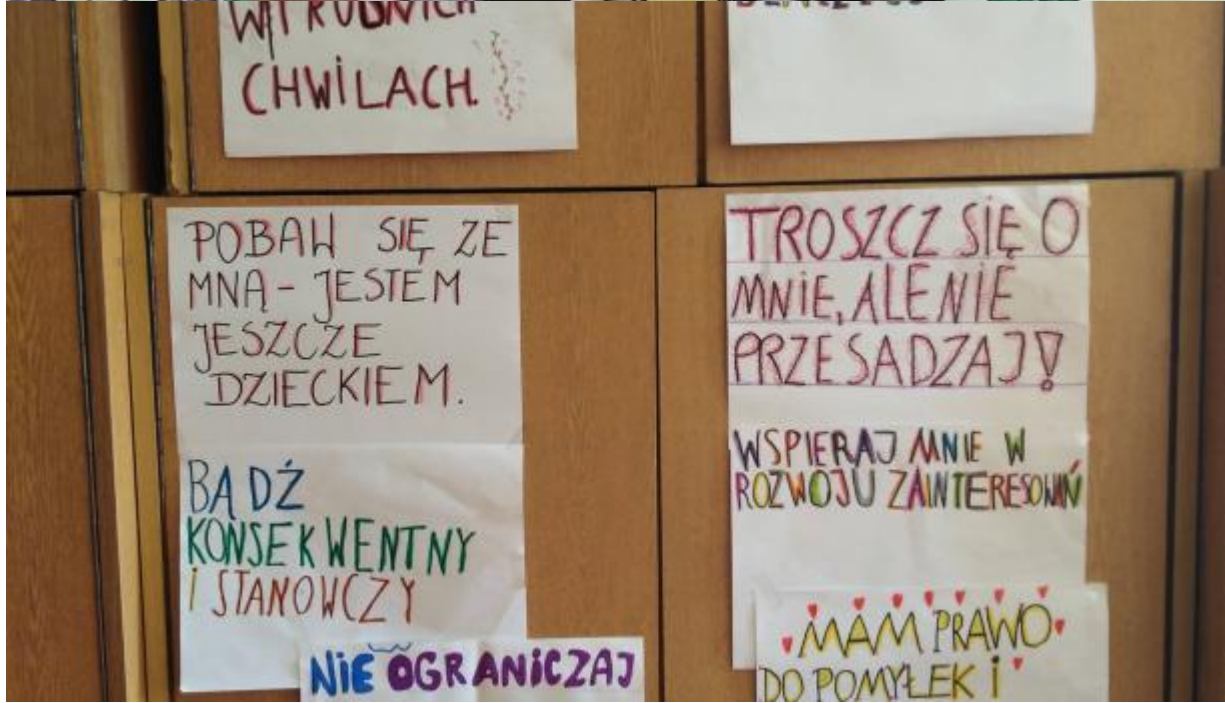 W TRUDNYCH
CHWiLACH.
POBAW SIĘ ZE
MNĄ - JESTEM
JESZCZE
DZIECKIEM.
BĄDŹ
KONSEKWENTNY
i STANOWCZY
NiE OGRANICZAJ
TROSZCZ SiĘ O
MNiE, ALE NIE
PRZESADZAJ!
WSPIERAJ MNIE W
ROZWOJU ZAINTERESOWAŃ
MAM PRAWO
DO POMYŁEK i